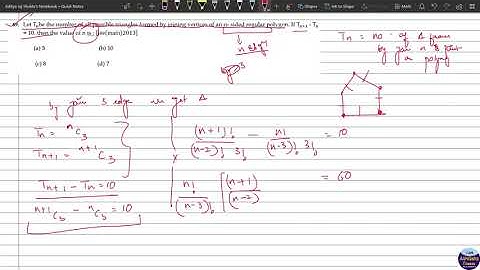 Aditya by Mukti's Notebook - Quick Notes
Let Tn be the number of all possible triangles formed by joining vertices of an n-sided regular polygon. If Tn+1 - Tn
= 10, then the value of n is : [Jee(main)2013]
(a) 5 (b) 10
(c) 8 (d) 7
n edge
Tn = no of Δ from
by join n
a polyg
by join 3 edge we get Δ
Tn = nC3
Tn+1 = n+1C3
Tn+1 - Tn = 10
n+1C3 - nC3 = 10
(n+1)!/(n-2)! 3! - n!/(n-3)! 3! = 10
n!/(n-3)! [(n+1)/(n-2) = 60